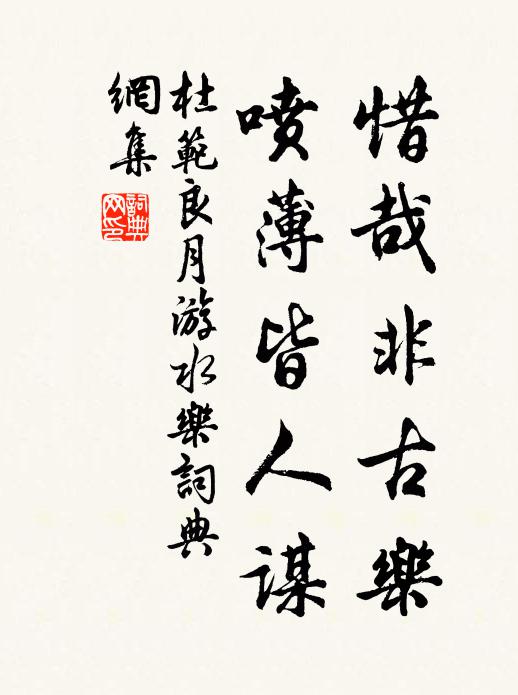 惜哉非古樂
噴薄皆人謀
杜範良月游水樂詞典
網集
詞典網印